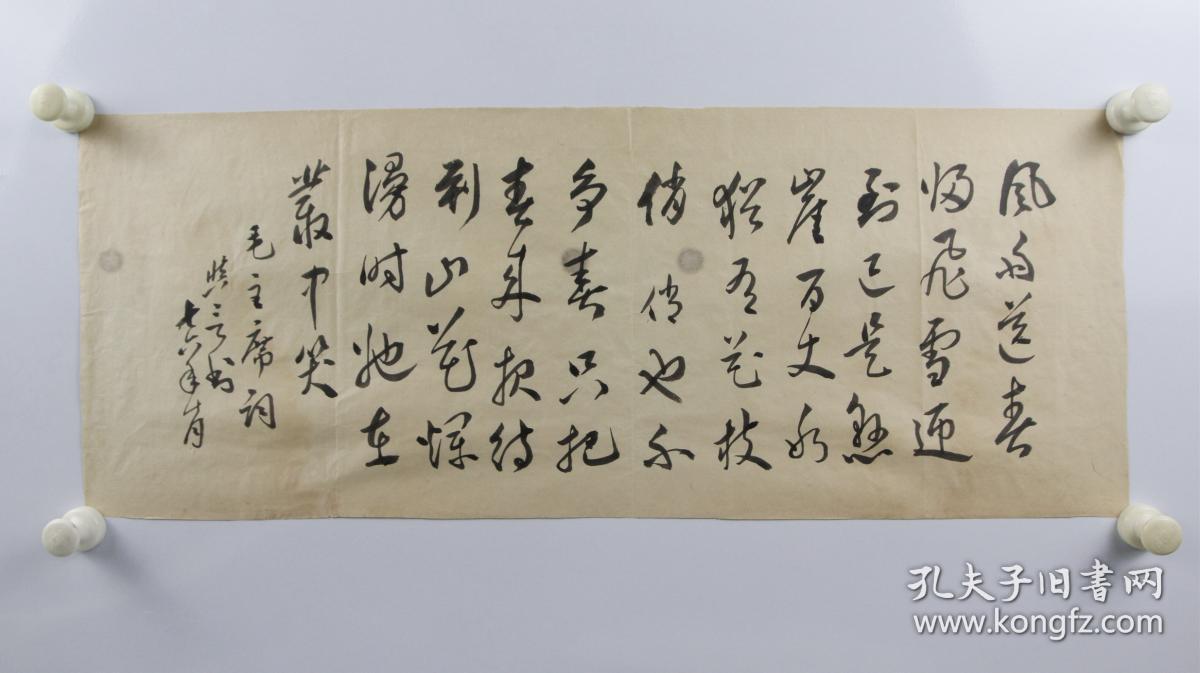 风雨送春
归飞雪迎
到已是悬
崖百丈冰
犹有花枝
俏俏也不
争春只把
春来报待
到山花烂
漫时她在
叢中笑
毛主席词
书
七六年月
孔夫子旧书网
www.kongfz.com